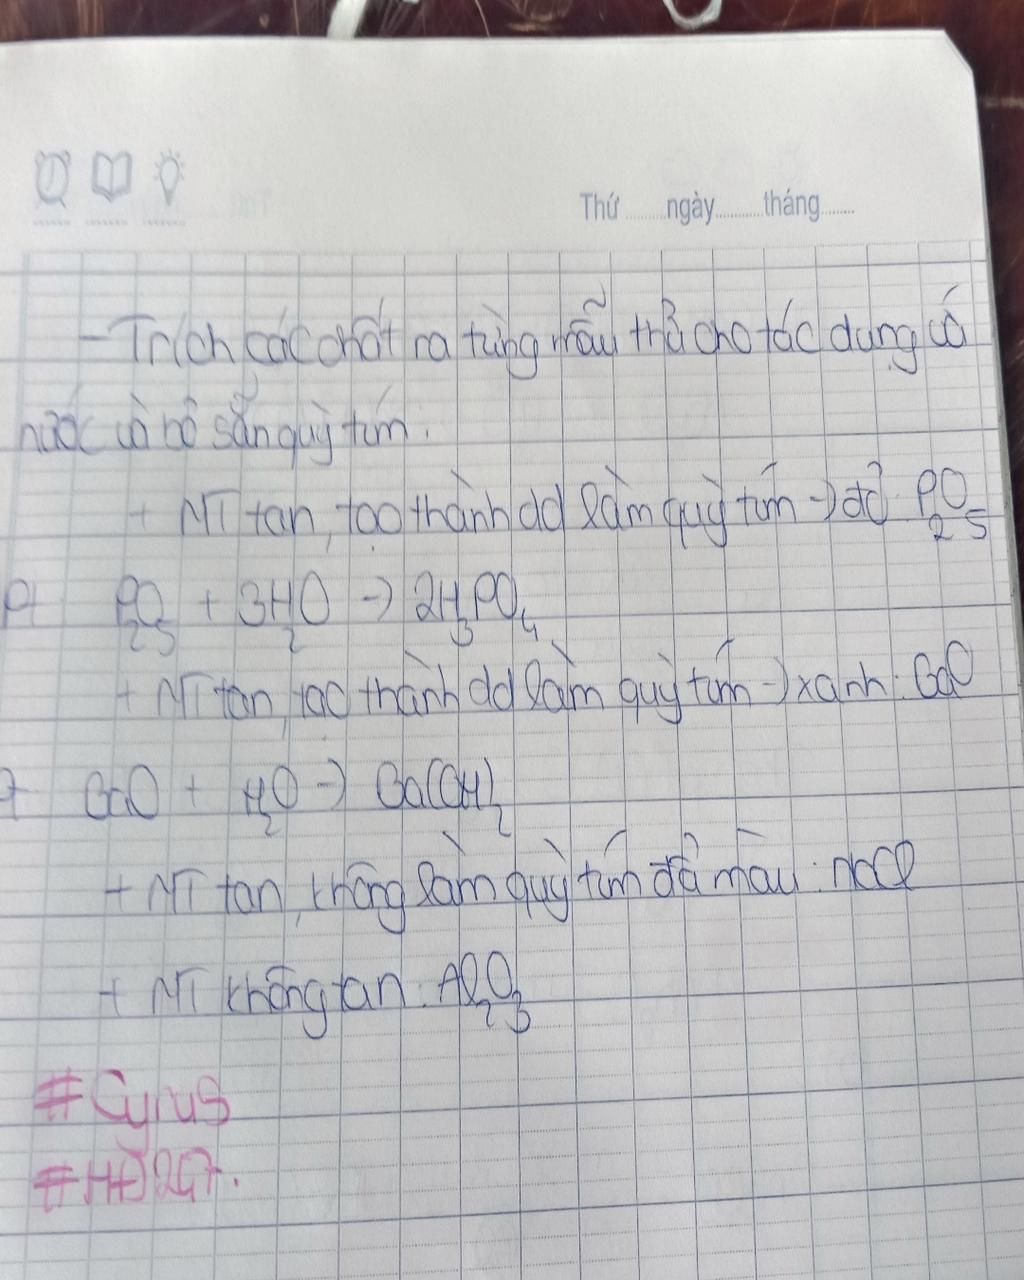 Thứ.......ngày..........tháng.......
- Trích các chất ra từng mẫu thử cho tác dụng có
nước và bỏ sẵn quỳ tím.
+ NT tan, tạo thành dd làm quỳ tím -> đỏ : P₂O₅
Pt P₂O₅ + 3H₂O -> 2H₃PO₄
+ NT tan, tạo thành dd làm quỳ tím -> xanh : CaO
CaO + H₂O -> Ca(OH)₂
+ NT tan, không làm quỳ tím đổi màu : NaCl
+ NT không tan : Al₂O₃
#Cyrus
#HĐ247.